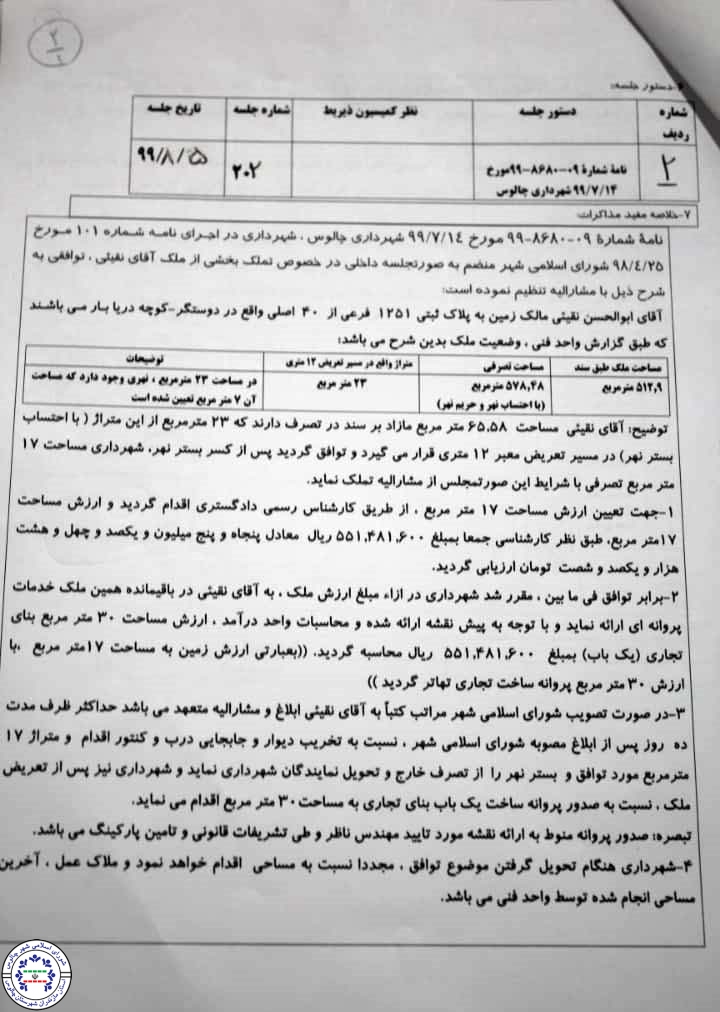 ۲
۶-دستور جلسه:
شماره ردیف
دستور جلسه
نظر کمیسیون ذیربط
شماره جلسه
تاریخ جلسه
۲
نامهٔ شمارهٔ ۰۹-۸۶۸۰-۹۹مورخ
۹۹/۷/۱۴ شهرداری چالوس
۲۰۲
۹۹/۸/۵
۷-خلاصه مفید مذاکرات:
نامهٔ شمارهٔ ۰۹-۸۶۸۰-۹۹ مورخ ۹۹/۷/۱۴ شهرداری چالوس ، شهرداری در اجرای نامه شماره ۱۰۱ مورخ
۹۸/۴/۲۵ شورای اسلامی شهر منضم به صورتجلسه داخلی در خصوص تملک بخشی از ملک آقای نقیئی ، توافقی به
شرح ذیل با مشارالیه تنظیم نموده است:
آقای ابوالحسن نقیئی مالک زمین به پلاک ثبتی ۱۲۵۱ فرعی از ۴۰ اصلی واقع در دوستگر-کوچه دریا بار می باشند
که طبق گزارش واحد فنی ، وضعیت ملک بدین شرح می باشد:
مساحت ملک طبق سند
مساحت تصرفی
متراژ واقع در مسیر تعریض ۱۲ متری
توضیحات
۵۱۲,۹ مترمربع
۵۷۸,۴۸ مترمربع
(با احتساب نهر و حریم نهر)
۲۳ متر مربع
در مساحت ۲۳ مترمربع ، نهری وجود دارد که مساحت
آن ۷ متر مربع تعیین شده است
توضیح: آقای نقیئی مساحت ۶۵.۵۸ متر مربع مازاد بر سند در تصرف دارند که ۲۳ مترمربع از این متراژ ( با احتساب
بستر نهر) در مسیر تعریض معبر ۱۲ متری قرار می گیرد و توافق گردید پس از کسر بستر نهر، شهرداری مساحت ۱۷
متر مربع تصرفی با شرایط این صورتمجلس از مشارالیه تملک نماید.
۱-جهت تعیین ارزش مساحت ۱۷ متر مربع ، از طریق کارشناس رسمی دادگستری اقدام گردید و ارزش مساحت
۱۷متر مربع، طبق نظر کارشناسی جمعا بمبلغ ۵۵۱,۴۸۱,۶۰۰ ریال معادل پنجاه و پنج میلیون و یکصد و چهل و هشت
هزار و یکصد و شصت تومان ارزیابی گردید.
۲-برابر توافق فی ما بین ، مقرر شد شهرداری در ازاء مبلغ ارزش ملک ، به آقای نقیئی در باقیمانده همین ملک خدمات
پروانه ای ارائه نماید و با توجه به پیش نقشه ارائه شده و محاسبات واحد درآمد ، ارزش مساحت ۳۰ متر مربع بنای
تجاری (یک باب) بمبلغ ۵۵۱,۴۸۱,۶۰۰ ریال محاسبه گردید. ((بعبارتی ارزش زمین به مساحت ۱۷متر مربع ،با
ارزش ۳۰ متر مربع پروانه ساخت تجاری تهاتر گردید ))
۳-در صورت تصویب شورای اسلامی شهر مراتب کتباً به آقای نقیئی ابلاغ و مشارالیه متعهد می باشد حداکثر ظرف مدت
ده روز پس از ابلاغ مصوبه شورای اسلامی شهر ، نسبت به تخریب دیوار و جابجایی درب و کنتور اقدام و متراژ ۱۷
مترمربع مورد توافق و بستر نهر را از تصرف خارج و تحویل نمایندگان شهرداری نماید و شهرداری نیز پس از تعریض
ملک ، نسبت به صدور پروانه ساخت یک باب بنای تجاری به مساحت۳۰ متر مربع اقدام می نماید.
تبصره: صدور پروانه منوط به ارائه نقشه مورد تایید مهندس ناظر و طی تشریفات قانونی و تامین پارکینگ می باشد.
۴-شهرداری هنگام تحویل گرفتن موضوع توافق ، مجددا نسبت به مساحی اقدام خواهد نمود و ملاک عمل ، آخرین
مساحی انجام شده توسط واحد فنی می باشد.
شورای اسلامی شهر چالوس
استان مازندران شهرستان چالوس